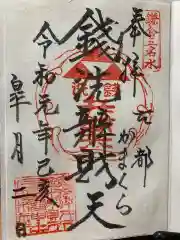 鎌倉五名水
奉拝 古都
かまくら
錢洗辨財天
令和元年己亥
皐月二日